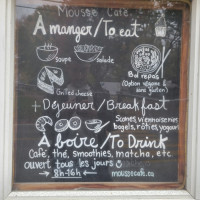 Mousse Café
À manger/To eat
soupe
salade
Grilled cheese
Bol repas
(Option végane &
sans gluten!)
+ Déjeuner/Breakfast
Scones, viennoiseries
bagels, rôties, yogurt
À boire/To Drink
Café, thé, smoothies, matcha, etc.
ouvert tous les jours
→ 8h-16h ←
moussecafe.ca